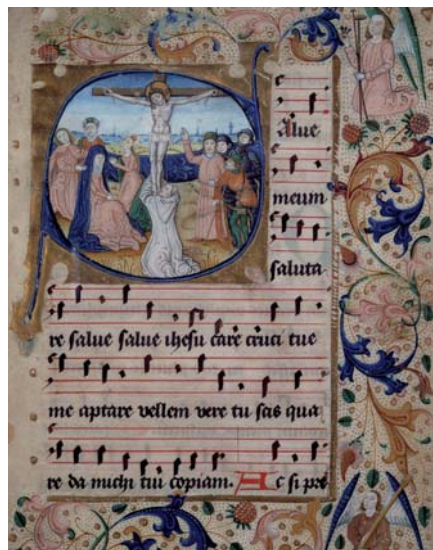 Salue
meum
saluta
re salue salue ihesu care cruci tue
me aptare vellem vere tu scis qua
re da michi tui copiam. Ac si pre